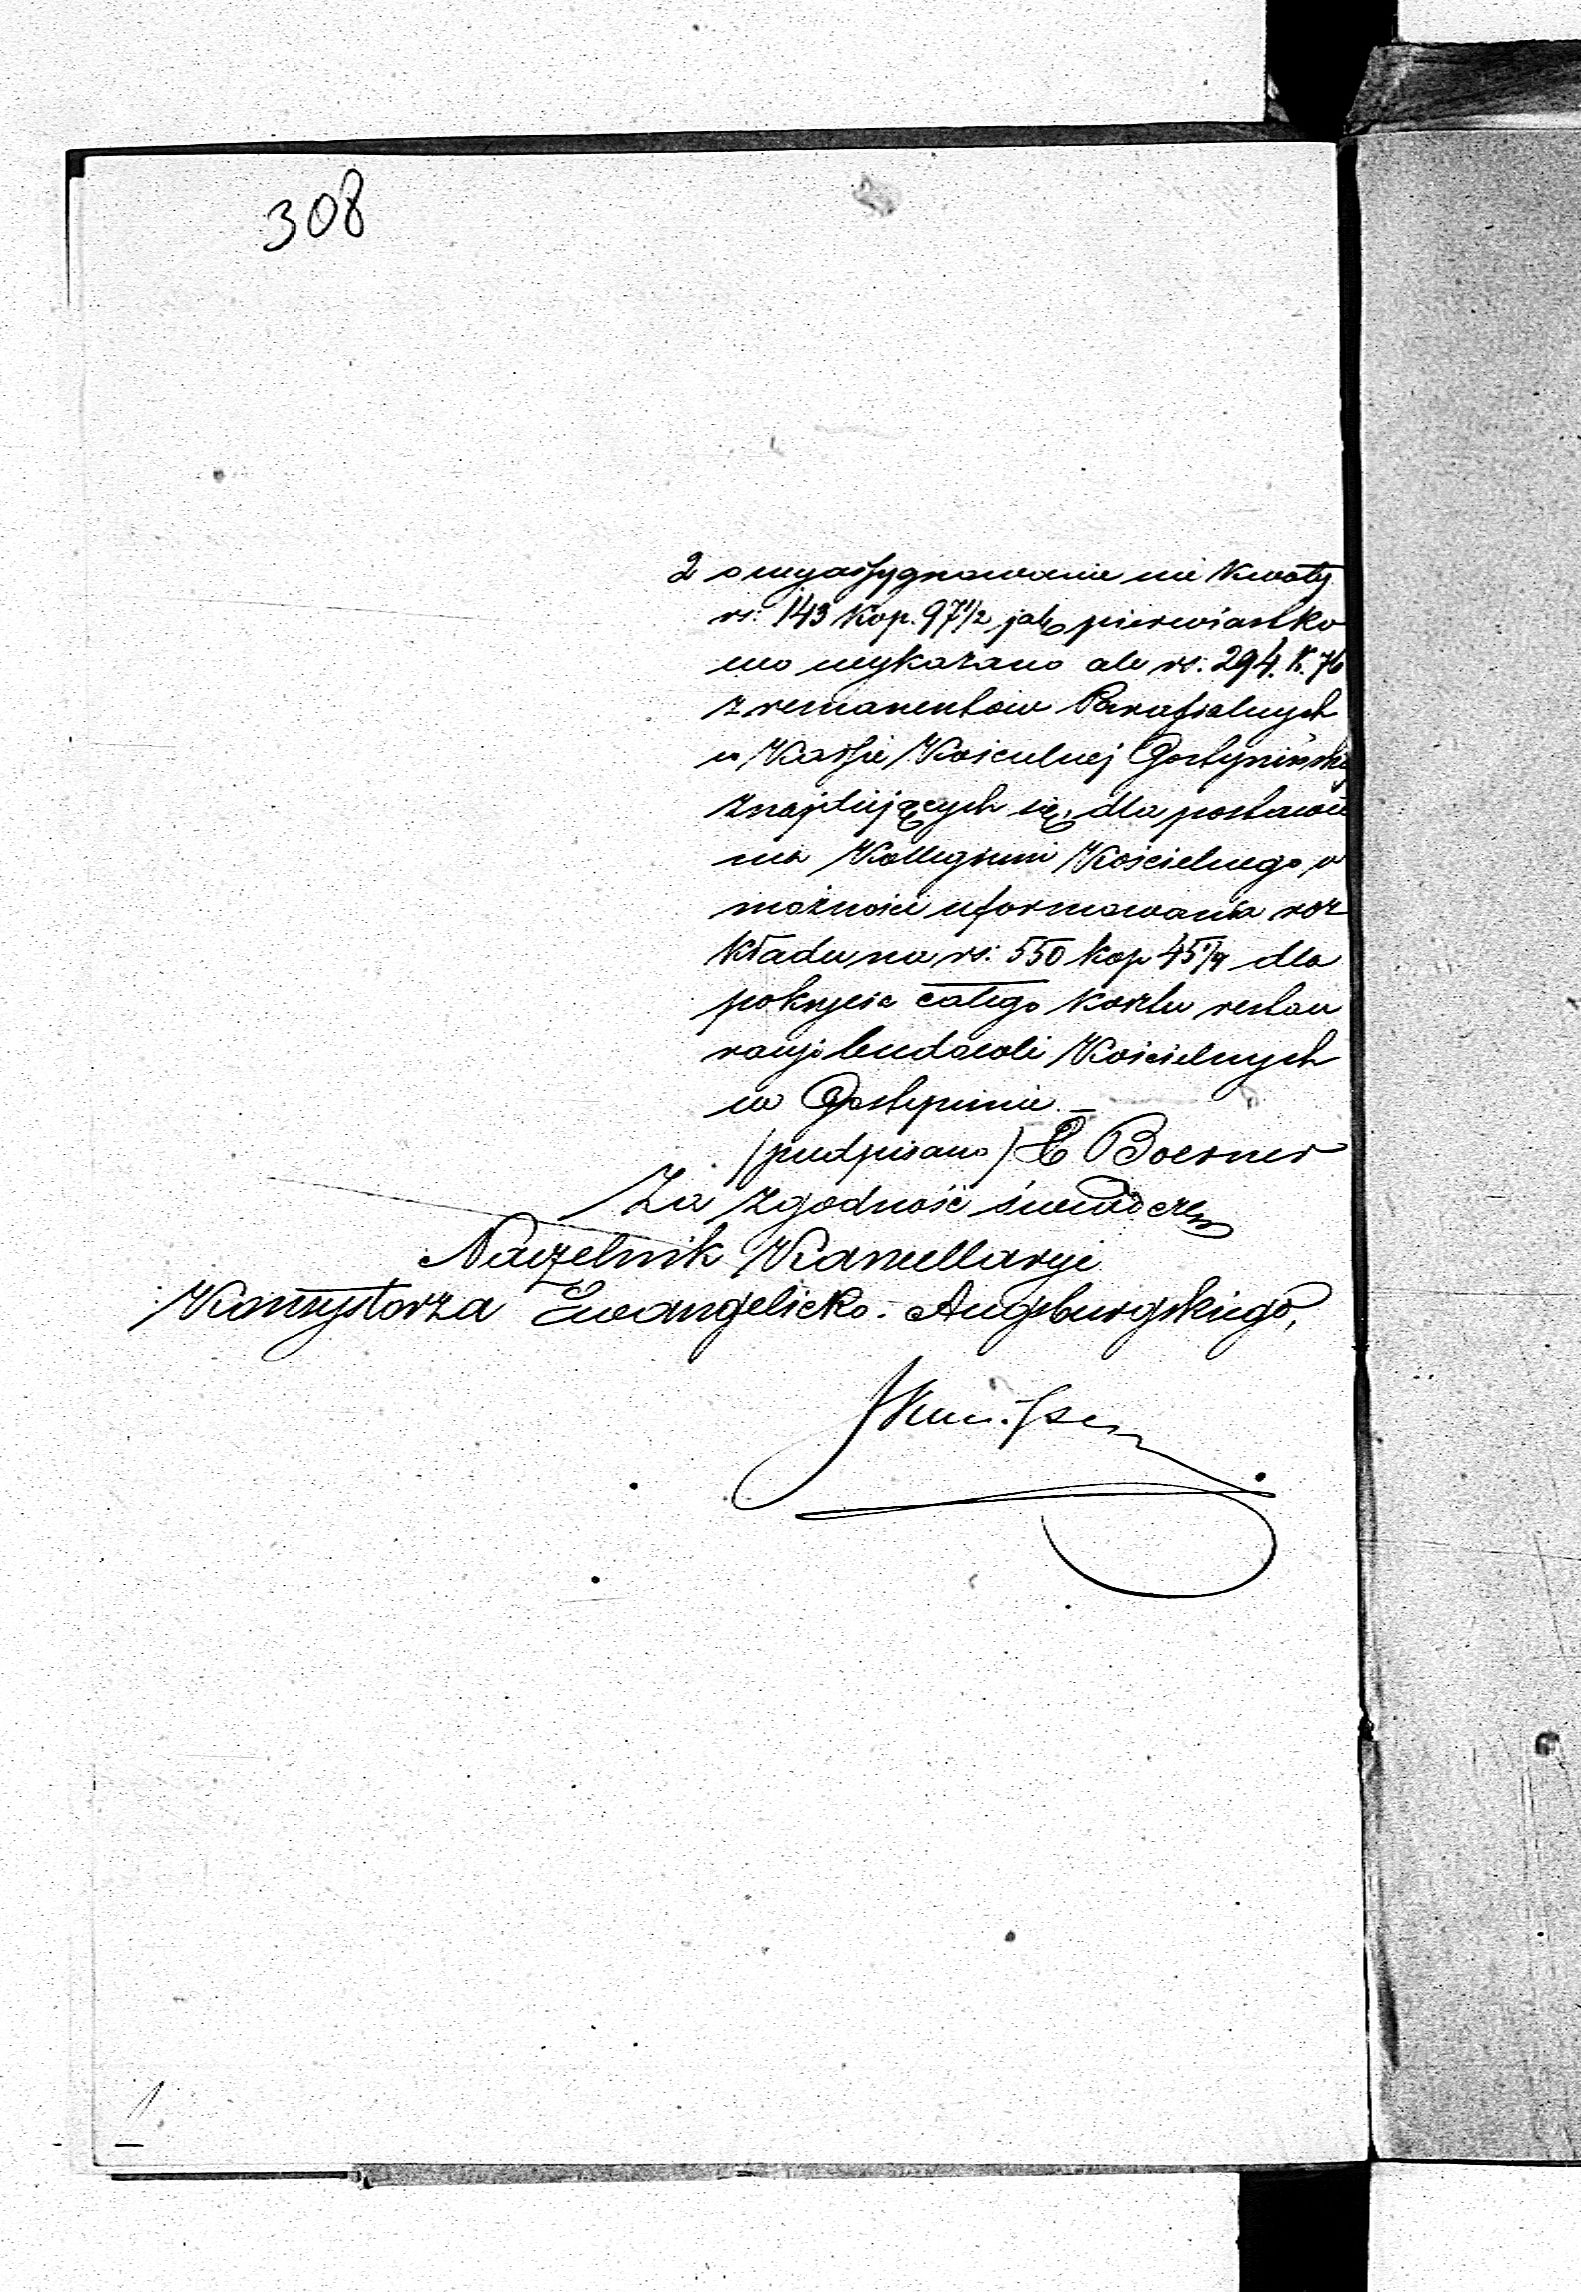 308
2 o wyassygnowanie nie kwoty
rs: 143 kop. 97 1/2 jak pierwiastko
wo wykazano ale rs: 294. k. 76
z remanentów Parafialnych
w Kassie Kościelnej Gostynińskiej
znajdujących się, dla postawie
nia Kollegium Kościelnego w
możności uformowania roz
kładu na rs: 550 kop 45 1/4 dla
pokrycia całego kosztu restau
racyi budowli Kościelnych
w Gostyninie. –
/podpisano/ Boerner
Za zgodność świadczę
Naczelnik Kancellaryi
Konsystorza Ewangelicko-Augsburgskiego,